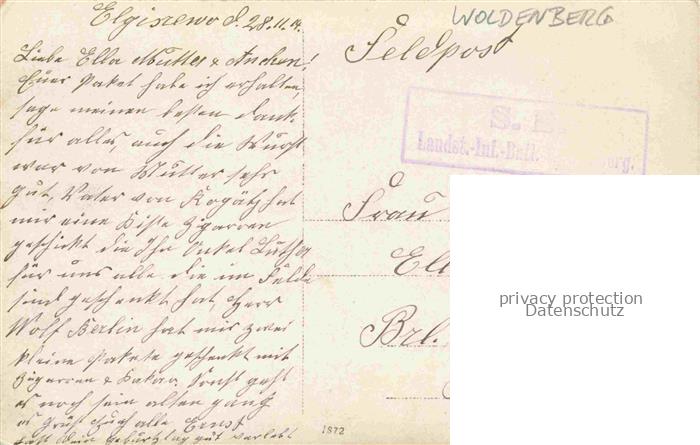 Elgiszewo d. 28.11.14.
Liebe Ella Mutter & Anchen!
Euer Paket habe ich erhalten,
sage meinen besten Dank
für alles, auch die Wurst
war von Mutter sehr
gut, Vater von Rogätz hat
mir eine Kiste Zigarren
geschickt die Ihn Onkel Luther
für uns alle die im Felde
sind geschenkt hat, Herr
Wolf Berlin hat mir zwei
kleine Pakete geschenkt mit
Zigarren & Kakao. Sonst geht
es noch sein alten gang
es grüßt Euch alle Ernst
Geburtstag gut verlebt
WOLDENBERG
Feldpost
S. B.
Landst.-Inf.-Batl.
Frau
Ell
Brl.
1872
privacy protection
Datenschutz